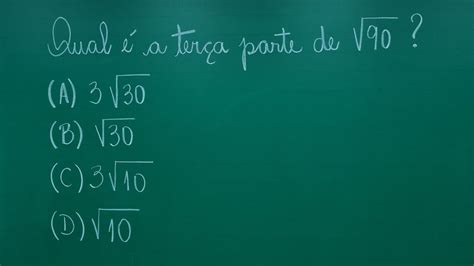 Qual é a terça parte de √90 ?
(A) 3√30
(B) √30
(C) 3√10
(D) √10